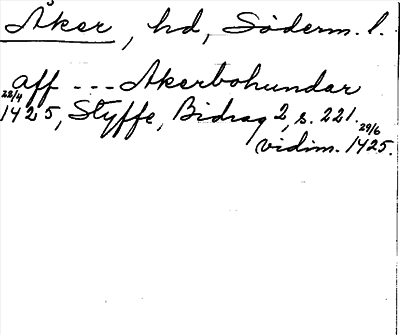 Åker, hd, Söderm. l.
aff --- Akerbohundar
22/4 1425, Styffe, Bidrag 2, s. 221.
vidim. 29/6 1425.